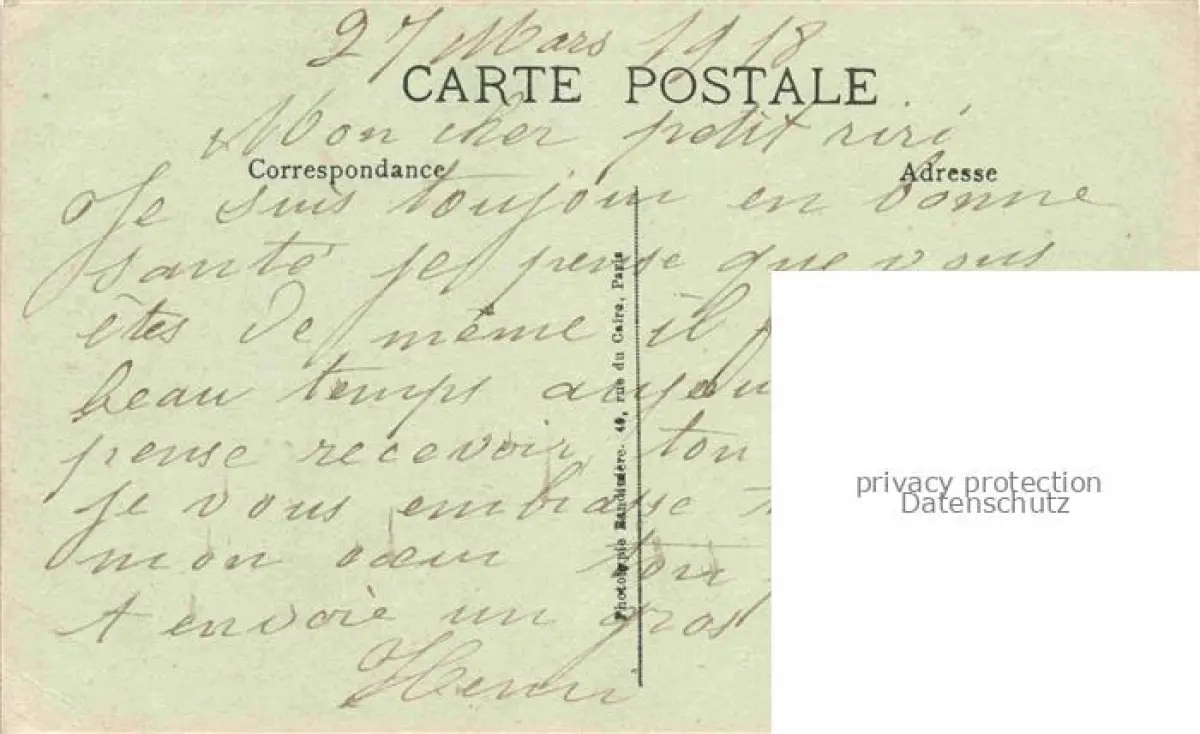 27 Mars 1918
CARTE POSTALE
Mon cher petit riri
Correspondance
Adresse
Je suis toujour en bonne
santé je pense que vous
êtes de même il
beau temps aujou
pense recevoir ton
je vous embrasse
mon cœur ton
t envoie un gros
Henri
Phototypie Baudinière. 40, rue du Caire, Paris
privacy protection
Datenschutz